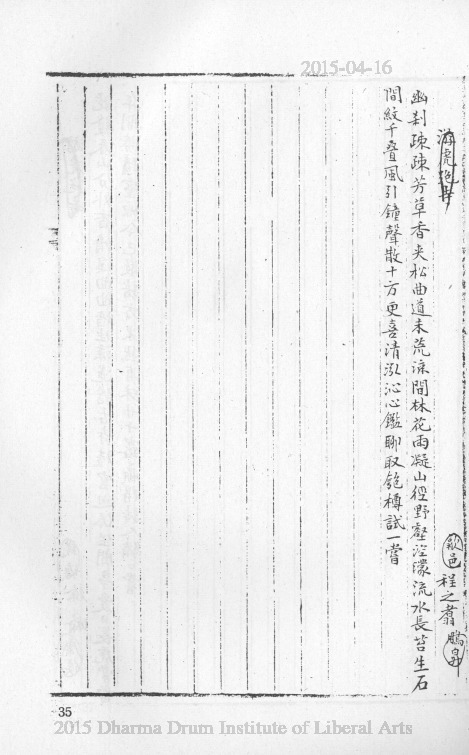 2015-04-16
游虎跑寺
歙邑 程之鵕 鵬昇
幽剎疎疎芳草香夾松曲道未荒涼間林花雨凝山徑野壑涳濛流水長苔生石
間紋千叠風引鐘聲散十方更喜清泓沁心鑑聊取匏樽試一嘗
35
2015 Dharma Drum Institute of Liberal Arts